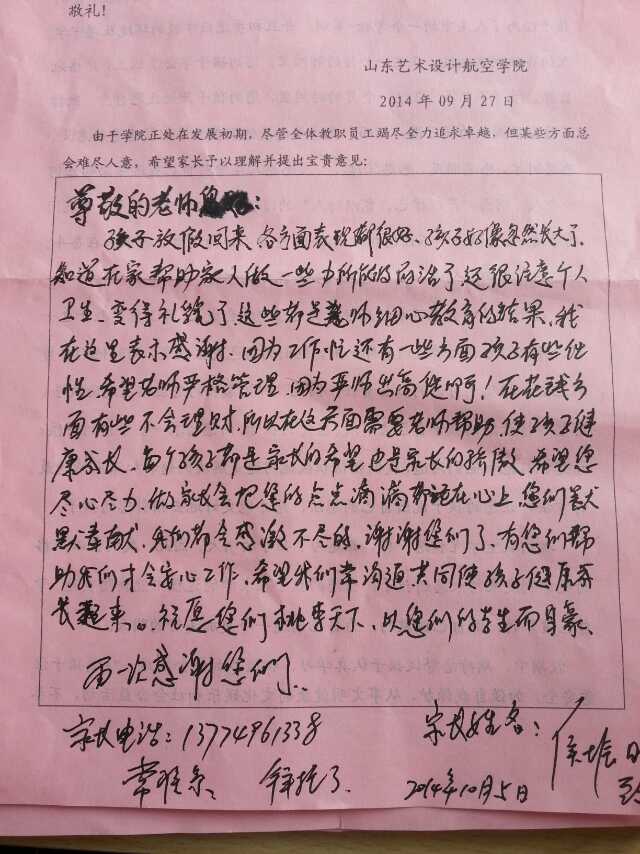 敬礼!
山东艺术设计航空学院
2014年09月27日
由于学院正处在发展初期,尽管全体教职员工竭尽全力追求卓越,但某些方面总
会难尽人意,希望家长予以理解并提出宝贵意见:
尊敬的老师:
孩子放假回来、各方面表现都很好、孩子好像忽然长大了、
知道在家帮助家人做一些力所能及的活了还很注意个人
卫生、变得礼貌了这些都是老师细心教育的结果、我
在这里表示感谢.因为工作忙还有一些方面孩子有些任
性.希望老师严格管理.因为严师出高徒啊!在花钱方
面有些不会理财.所以在这方面需要老师帮助.使孩子健
康成长、每个孩子都是家长的希望也是家长的骄傲、希望您
尽心尽力.做家长会把您的点点滴滴都记在心上、您们默
默奉献、我们都会感激不尽的.谢谢您们了、有您们帮
助我们才会安心工作、希望我们常沟通、共同使孩子健康成
长起来。祝愿您们桃李天下、以您们的学生而自豪、
再一次感谢您们、
家长电话:13774961338
家长姓名:侯
常联系、拜托了
2014年10月5日